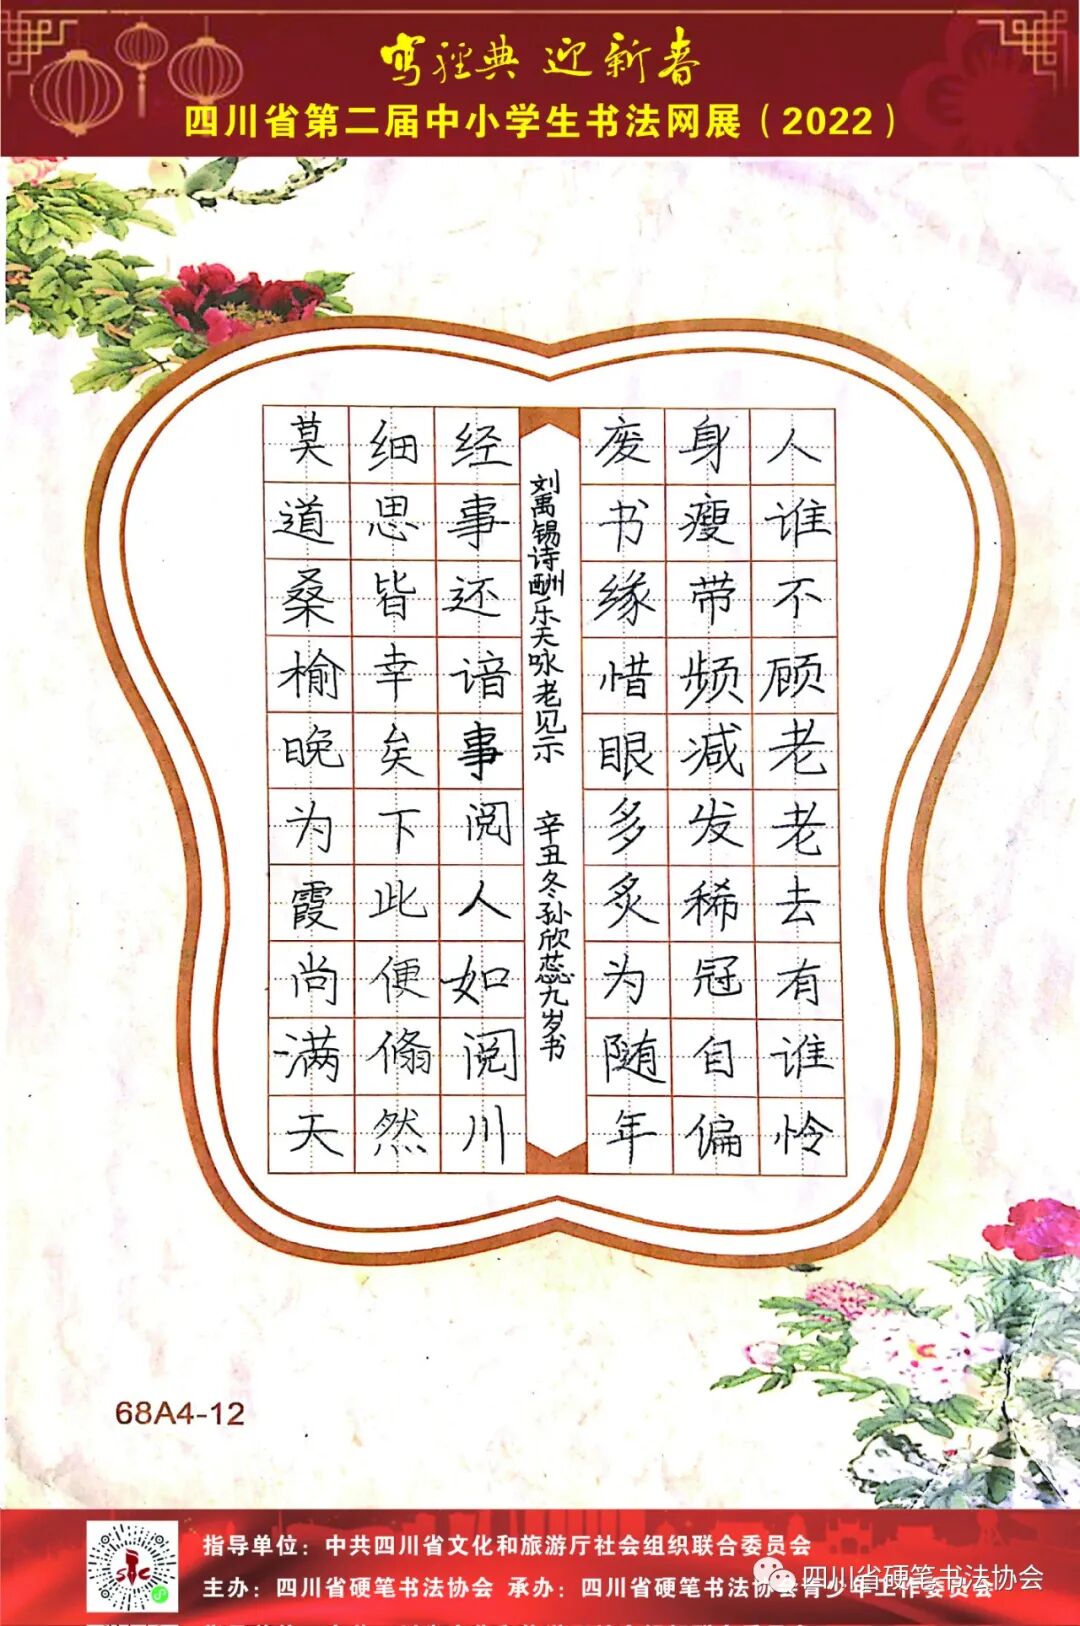 写经典 迎新春
四川省第二届中小学生书法网展（2022）
人谁不顾老老去有谁怜
身瘦带频减发稀冠自偏
废书缘惜眼多炙为随年
刘禹锡诗酬乐天咏老见示 辛丑冬孙欣蕊九岁书
经事还谙事阅人如阅川
细思皆幸矣下此便翛然
莫道桑榆晚为霞尚满天
68A4-12
指导单位：中共四川省文化和旅游厅社会组织联合委员会
主办：四川省硬笔书法协会 承办：四川省硬笔书法协会青少年工作委员会
四川省硬笔书法协会